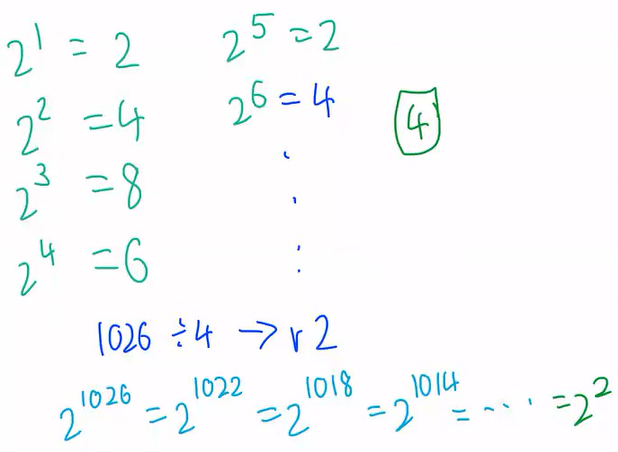 2^1 = 2
2^2 = 4
2^3 = 8
2^4 = 6
2^5 = 2
2^6 = 4
.
.
.
4
1026 ÷ 4 → r 2
2^1026 = 2^1022 = 2^1018 = 2^1014 = ... = 2^2